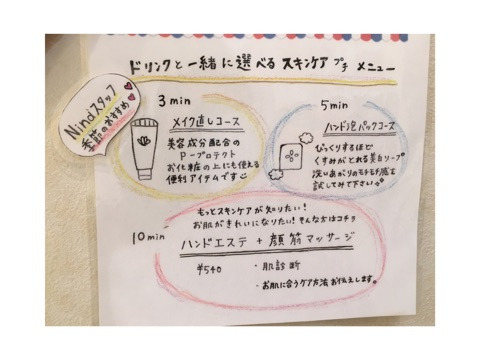 ドリンクと一緒に選べるスキンケアプチメニュー
Nindスタッフ
季節のおすすめ
3min
メイク直しコース
美容成分配合の
Pープロテクト
お化粧の上にも使える
便利アイテムです
5min
ハンド泡パックコース
びっくりするほど
くすみがとれる美白ソープ
洗いあがりのモチモチ感を
試してみて下さい
もっとスキンケアが知りたい!
お肌がきれいになりたい!そんな方はコチラ
10min
ハンドエステ + 顔筋マッサージ
¥540 ・肌診断
・お肌に合うケア方法お伝えします。